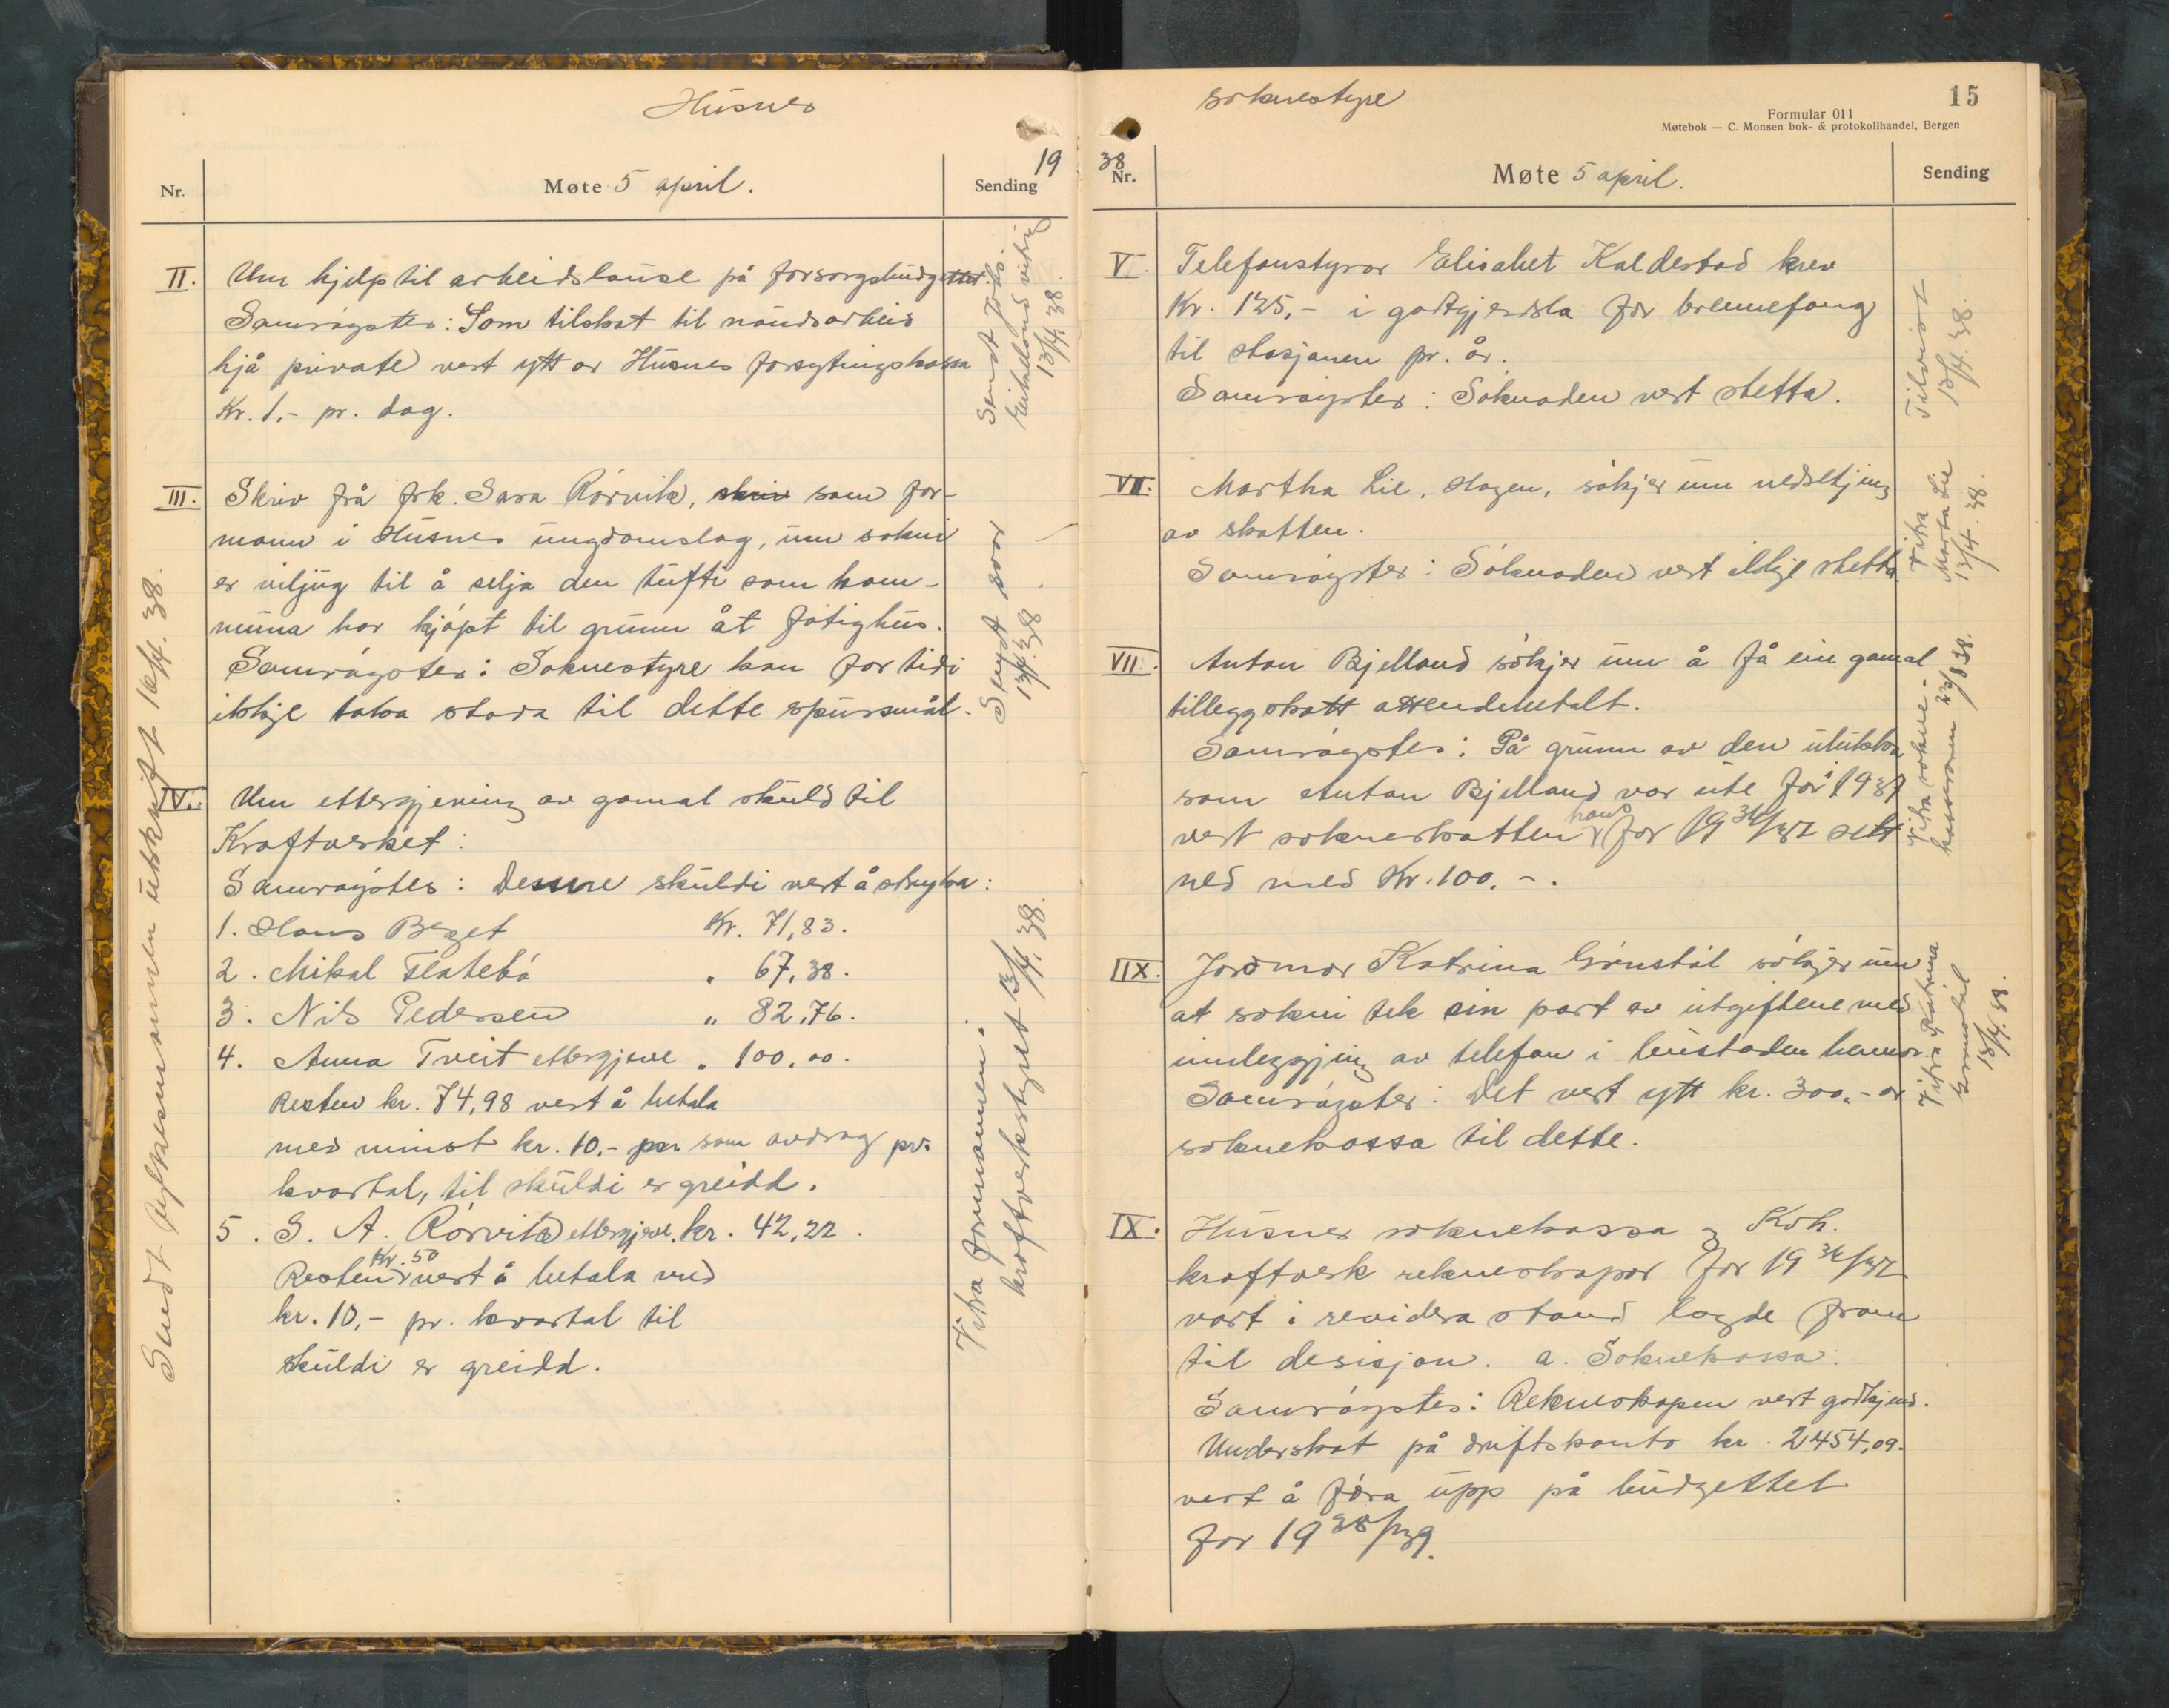 Husnes
19
Nr.
Møte 5 april.
Sending
II. Um hjelp til arbeidslause på forsorgsbudgettet.
Samrøystes: Som tilskot til naudsarbeid
hjå private vert ytt av Husnes forsytingskassa
Kr. 1,- pr. dag.
Sendt Johs.
13/4. 38.
III. Skriv frå frk. Sara Rórvik, skriv som for-
mann i Husnes ungdomslag, um sokni
er viljug til å selja den tufti som kom-
muna har kjópt til grunn åt fatighus.
Samróystes: Soknestyre kan for tidi
ikkje taka stoda til dette spursmål.
Sendt svar
13/4. 38
IV. Um ettergjeving av gamal skuld til
Kraftverket:
Samróystes: Dessse skuldi vert å stryka:
1. Hans Berget Kr. 71,83.
2. Mikal Flatebó " 67,38.
3. Nils Pedersen " 82,76.
4. Anna Tveit ettergjeve " 100,00.
Resten kr. 74,98 vert å betala
med minst kr. 10,- par som avdrag pr.
kvartal, til skuldi er greidd.
5. S. A. Rórvik ettergjeve kr. 42,22.
Resten Kr. 50 vert å betala med
kr. 10,- pr. kvartal til
skuldi er greidd.
Vitra formannen i
kraftverkstyret 13/4. 38.
Sendt fylkesmannen utskrift 16/4. 38.
soknestyre
15
Formular 011
Møtebok — C. Monsen bok- & protokollhandel, Bergen
38
Nr.
Møte 5 april.
Sending
V. Telefonstyrar Elisabet Kaldestad krev
Kr. 125,- i godtgjersla for brennefang
til stasjonen pr. år.
Samróystes: Sóknaden vert stetta.
Tilvist
13/4. 38.
VII. Martha Lie, Hagen, sókjer um nedsetjing
av skatten.
Samróystes: Sóknaden vert ikkje stetta
Vitra
Marta Lie
13/4. 38.
VII. Anton Bjelland sókjer um å få ein gamal
tilleggskatt attendebetalt.
Samróystes: På grunn av den ulukka
som Anton Bjelland var ute for i 1937
vert sokneskatten hans for 1936/37 sett
ned med Kr. 100.-.
Vitra sokne-
kasseraren 38.
IIX. Jordmor Katrina Grónstól sókjer um
at sokni tek sin part av utgiftene med
innleggjing av telefon i bustaden hennar.
Samróystes: Det vert ytt kr. 300.- av
soknekassa til dette.
Vitra Katrina
Grónstól
13/4. 38.
IX. Husnes soknekassa og Kvh.
kraftverk rekneskapar for 1936/37
vart i revidera stand lagde fram
til desisjon. a. Soknekassa:
Samróystes: Rekneskapen vert godkjend.
Underskot på driftskonto kr. 2454,09.
vert å fóra upp på budgettet
for 1938/39.